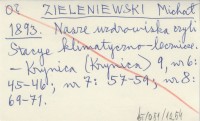 03 ZIELENIEWSKI Michał
1893. Nasze uzdrowiska czyli
Stacye klimatyczno-lecznicze.
- Krynica (Krynica) 9, nr 6:
45-46; nr 7: 57-59; nr 8:
69-71.